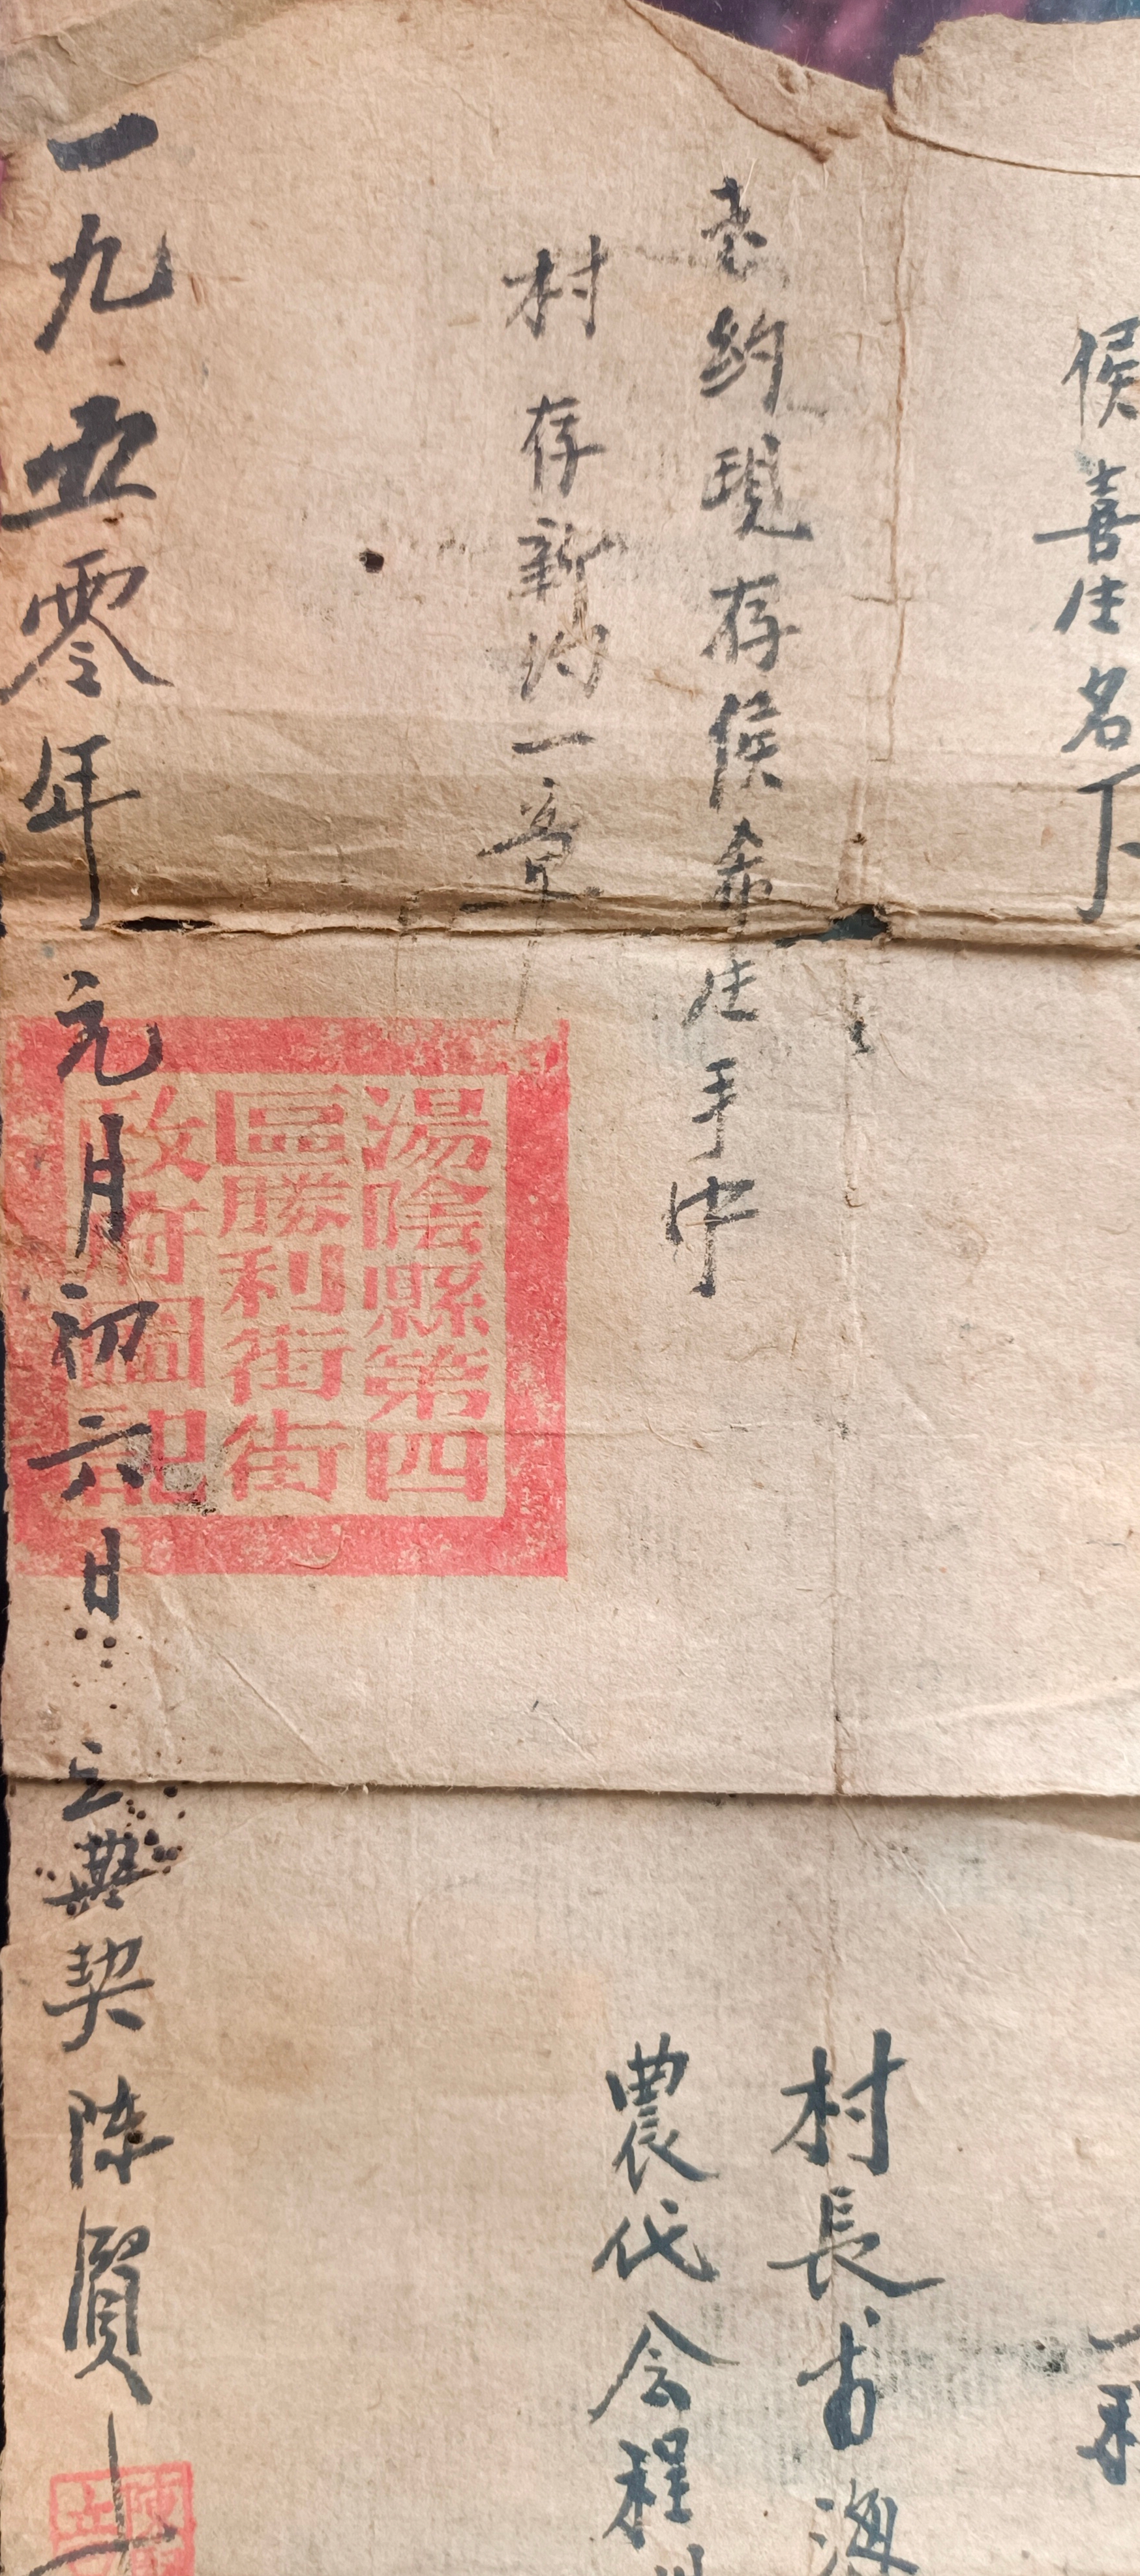 侯喜生名下
老約現存侯希生手中
村 存新約一章
村長
農代会程
一九五零年元月初六日 立典契陈賢
湯陰縣第四
區勝利街街
政府圖記